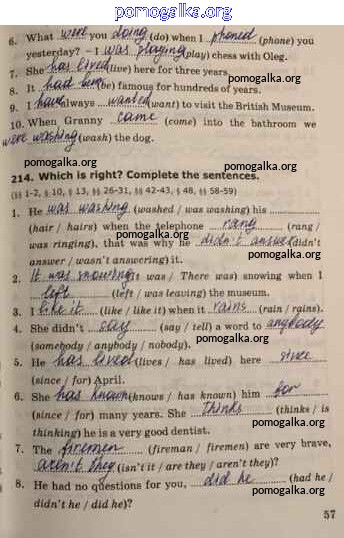 pomogalka.org
6. What were you doing (do) when I phoned (phone) you
yesterday? – I was playing (play) chess with Oleg.
pomogalka.org
7. She has lived (live) here for three years.
pomogalka.org
8. It had been (be) famous for hundreds of years.
9. I have always wanted (want) to visit the British Museum.
10. When Granny came (come) into the bathroom we
were washing (wash) the dog.
pomogalka.org pomogalka.org
214. Which is right? Complete the sentences.
(§§ 1-2, § 10, § 13, §§ 26-31, §§ 42-43, § 48, §§ 58-59)
1. He was washing (washed / was washing) his
pomogalka.org
(hair / hairs) when the telephone rang (rang /
was ringing), that was why he didn't answer (didn't
answer / wasn't answering) it.
pomogalka.org
2. It was snowing (It was / There was) snowing when I
left (left / was leaving) the museum.
pomogalka.org
3. I like it (like / like it) when it rains (rain / rains).
4. She didn't say (say / tell) a word to anybody
pomogalka.org
(somebody / anybody / nobody).
5. He has lived (lives / has lived) here since
(since / for) April.
pomogalka.org
6. She has known (knows / has known) him for
(since / for) many years. She thinks (thinks / is
thinking) he is a very good dentist.
pomogalka.org
7. The firemen (fireman / firemen) are very brave,
aren't they (isn't it / are they / aren't they)?
pomogalka.org
8. He had no questions for you, did he (had he /
didn't he / did he)?
pomogalka.org
57